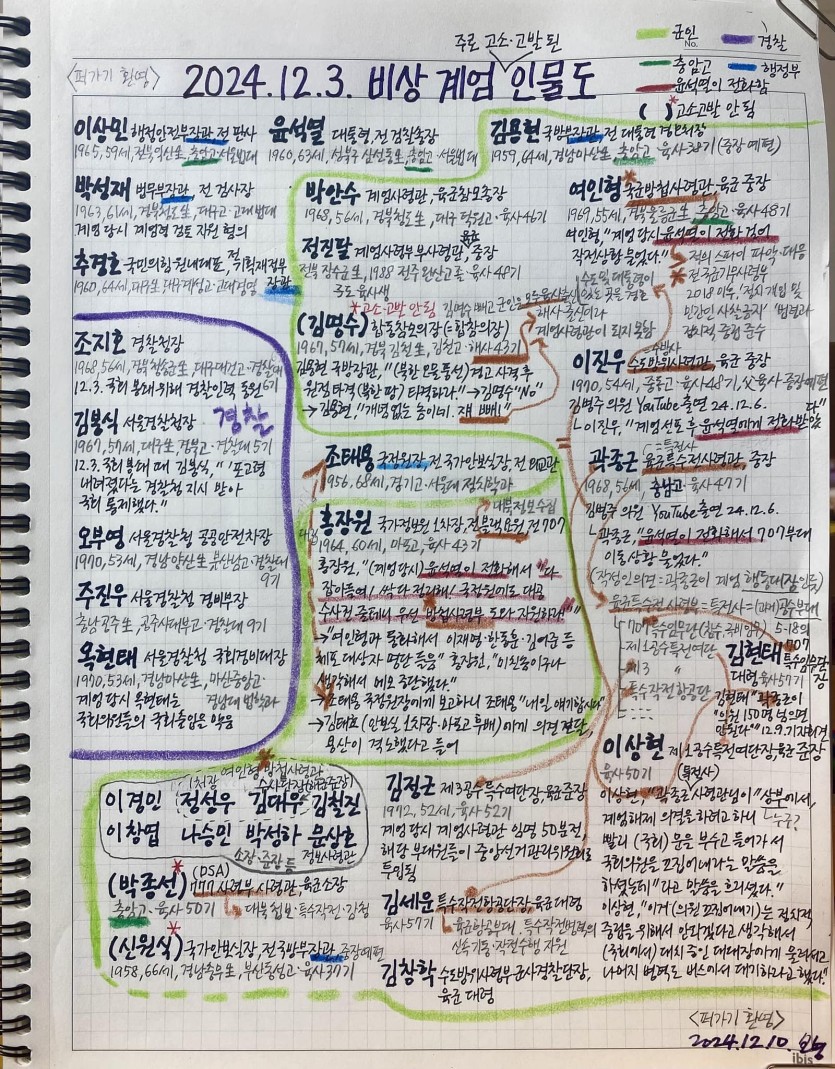 주로 고소·고발된
군인
경찰
충암고
행정부
윤석열이 전화함
( )* 고소고발 안 됨
<퍼가기 환영>
2024.12.3. 비상 계엄 인물도
이상민 행정안전부장관, 전 판사
1965, 59세, 전북익산生, 충암고·서울법대
윤석열 대통령, 전 검찰총장
1960, 63세, 성북구 삼선동生, 충암고·서울법대
김용현 국방부장관, 전 대통령경호처장
1959, 64세, 경남마산生, 충암고·육사38기 (중장 예편)
박성재 법무부장관, 전 검사장
1963, 61세, 경북청도生, 대구고·고대법대
계엄 당시 계엄령 검토 지원 혐의
추경호 국민의힘 원내대표, 전 기획재정부
장관
1960, 64세, 대구生, 대구계성고·고대경영
조지호 경찰청장
1968, 56세, 경북청송生, 대구대건고·경찰대
6기
12.3. 국회 봉쇄 위해 경찰인력 동원
경찰
김봉식 서울경찰청장
1967, 57세, 대구生, 경북고·경찰대 5기
12.3. 국회 봉쇄 때 김봉식, "포고령
내려졌다는 경찰청 지시 받아
국회 통제했다."
오부명 서울경찰청 공공안전차장
1970, 53세, 경남양산生, 부산남고·경찰대
9기
주진우 서울경찰청 경비부장
충남공주生, 공주사대부고·경찰대 9기
목현태 서울경찰청 국회경비대장
1970, 53세, 경남마산生, 마산중앙고·
경남대 법학과
계엄 당시 목현태는
국회의원들의 국회출입을 막음
박안수 계엄사령관, 육군참모총장
1968, 56세, 경북청도生, 대구 덕원고·육사46기
정진팔 계엄사령부부사령관, 육군 중장
전북 장수군生, 1988 전주 완산고 졸·육사48기
3도 육사생
*고소·고발 안 됨
(김명수) 합동참모의장 (=합참의장)
1967, 57세, 경북 김천生, 김천고·해사43기
김명수 빼고 군인은 모두 육사출신
해사 출신이라
계엄사령관이 되지 못함
김용현 국방장관, "(북한 오물풍선) 경고사격 후
원점타격 (북한 땅) 타격하라." → 김명수 "No"
→ 김용현, "개념 없는 놈이네. 쟤 빼!"
조태용 국정원장, 전 국가안보실장, 전 외교관
1956, 68세, 경기고·서울대 정치학과
대북정보수집
홍장원 국가정보원 1차장, 전 블랙요원, 전 707
1964, 60세, 마포고, 육사 43기
홍장원, "(계엄 당시) 윤석열이 전화해서 "다
잡아들여/싹 다 정리해/국정원에도 대공
수사권 줄테니 우선 방첩사령부 도와 지원하라""
→ "여인형과 통화해서 이재명·한동훈·김어준 등
체포 대상자 명단 들음" 홍장원, "미친놈이구나
생각해서 메모 중단했다."
→ 조태용 국정원장에게 보고하니 조태용 "내일 얘기합시다"
→ 김태효 (안보실 1차장·마포고 후배)에게 의견 전달,
용산이 격노했다고 들어
여인형 국군방첩사령관, 육군 중장
1969, 55세, 경북울릉군生, 충암고·육사48기
여인형, "계엄 당시 윤석열이 전화 걸어
작전상황 물었다."
적의 스파이 파악·대응
전 국군기무사령부
2018 이후, '정치개입 및
민간인 사찰금지' 법령과
정치적 중립 준수
수도 및 대통령이
있는 곳도 경호
수방사
이진우 수도방위사령관, 육군 중장
1970, 54세, 중동고·육사48기, 父육사·중장예편
김병주 의원 YouTube 출연 24.12.6.
└ 이진우, "계엄선포 후 윤석열에게 전화받았
다"
=특전사
곽종근 육군특수전사령관, 중장
1968, 56세, 충남고·육사47기
김병주 의원 YouTube 출연 24.12.6.
└ 곽종근, "윤석열이 전화해서 707부대
이동상황 물었다."
(작정인의견: 곽종근이 계엄 행동대장인듯)
육군특수전사령부 = 특전사 = (과거)공수부대
5·18의
707 특수임무단
제1공수특전여단
제3 "
특수작전항공단
김현태 707
특수임무단
장
대령, 육사57기
김현태 "곽종근이
'의원 150명 넘으면
안된다'" 12.9.기자회견
이상현 제1공수특전여단장, 육군준장
육사50기
(특전사)
이상현, "곽종근 사령관님이 "상부에서,
└누구?
계엄해제 의결을 하려고 하니
빨리 (국회) 문을 부수고 들어가서
국회의원을 끄집어내라는 말씀을
하셨는데" 라고 말씀을 흐리셨다."
이상현, "이거 (의원 끄집어내기)는 정치적
중립을 위해서 안되겠다고 생각해서
(국회에서) 대치 중인 대대장에게 물러서고
나머지 병력도 버스에서 대기하라고 했다."
여인형 방첩사령관
1처장
수사단장(해군준장)
이경민 정성우 김대우 김철진
이창엽 나승민 박성하 문상호
소장·준장 등
정보사령관
(DSA)
(박종선)* 777사령부 사령관, 육군소장
충암고·육사50기
대북첩보·특수작전·감청
(신원식)* 국가안보실장, 전국방부장관, 중장예편
1958, 66세, 경남통영生, 부산동성고·육사37기
김정근 제3공수특수여단장, 육군준장
1972, 52세, 육사52기
계엄 당시 계엄사령관 임명 50분전,
해당 부대원들이 중앙선거관리위원회로
투입됨
김세운 특수작전항공단장, 육군대령
육사57기
└ 육군항공부대, 특수작전병력의
신속기동·작전수행 지원
김창학 수도방위사령부군사경찰단장,
육군 대령
<퍼가기 환영>
2024.12.10.
ibis